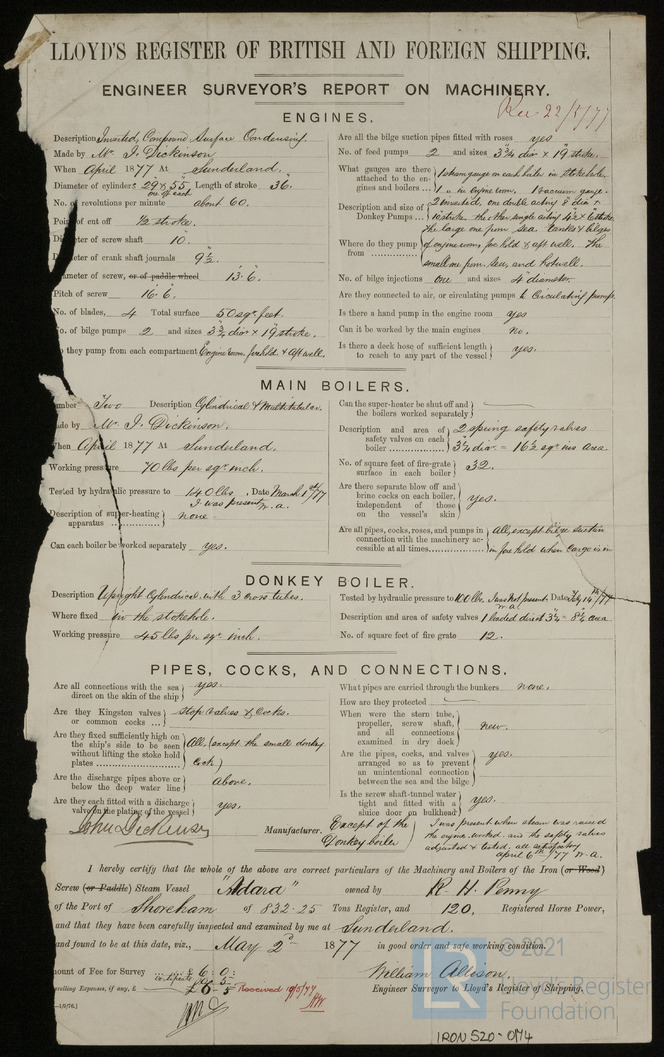 LLOYD'S REGISTER OF BRITISH AND FOREIGN SHIPPING.
ENGINEER SURVEYOR'S REPORT ON MACHINERY.
Rec 22/5/77
ENGINES.
Description Inverted, Compound Surface Condensing
Made by Mr J. Dickinson
When April 1877 At Sunderland.
Diameter of cylinders 29 & 55" Length of stroke 36."
one of each
No. of revolutions per minute about 60.
Point of cut off 1/2 stroke.
Diameter of screw shaft 10.
Diameter of crank shaft journals 9 1/2
Diameter of screw, or of paddle wheel 13.6.
Pitch of screw 16.6.
No. of blades, 4 Total surface 50 sqr feet.
No. of bilge pumps 2 and sizes 3 3/4 diar × 19 stroke.
they pump from each compartment Engine room, forehold & aft well.
Are all the bilge suction pipes fitted with roses yes
No. of feed pumps 2 and sizes 3 3/4 diar × 19 stroke.
What gauges are there attached to the engines and boilers 1 steam gauge on each boiler in stokehole
1 " in engine room, 1 vacuum gauge.
Description and size of Donkey Pumps 2 inverted, one double acting 8 diar ×
stroke the other single acting 4 1/2 × 6 stroke
Where do they pump from The large one from sea tanks & bilges
of engine room, fore hold & aft well. The
small one from sea, and hotwell.
No. of bilge injections one and sizes 4" diameter
Are they connected to air, or circulating pumps to Circulating pump.
Is there a hand pump in the engine room yes
Can it be worked by the main engines no.
Is there a deck hose of sufficient length to reach to any part of the vessel yes.
MAIN BOILERS.
Number Two Description Cylindrical & Multitubular.
Made by Mr J. Dickinson.
When April 1877 At Sunderland.
Working pressure 70 lbs per sqr inch.
Tested by hydraulic pressure to 140 lbs. Date March 1st/77
I was present W.A.
Description of super-heating apparatus none
Can each boiler be worked separately yes.
Can the super-heater be shut off and the boilers worked separately —
Description and area of safety valves on each boiler 2 spring safety valves
3 1/4 diar. = 16 1/2 sqr ins area
No. of square feet of fire-grate surface in each boiler 32.
Are there separate blow off and brine cocks on each boiler, independent of those on the vessel's skin yes.
Are all pipes, cocks, roses, and pumps in connection with the machinery accessible at all times All, except bilge suction
in fore hold when cargo is in
DONKEY BOILER.
Description Upright Cylindrical, with 3 cross tubes.
Where fixed in the stokehole.
Working pressure 45 lbs per sqr inch.
Tested by hydraulic pressure to 100 lbs. I was not present, Date 14th/77
W.A
Description and area of safety valves 1 loaded direct 3 1/4 = 8 1/4 area
No. of square feet of fire grate 12.
PIPES, COCKS, AND CONNECTIONS.
Are all connections with the sea direct on the skin of the ship yes.
Are they Kingston valves or common cocks stop valves & Cocks.
Are they fixed sufficiently high on the ship's side to be seen without lifting the stoke hold plates All, (except the small donkey
Cock)
Are the discharge pipes above or below the deep water line above.
Are they each fitted with a discharge valve on the plating of the vessel yes.
What pipes are carried through the bunkers none.
How are they protected —
When were the stern tube, propeller, screw shaft, and all connections examined in dry dock new.
Are the pipes, cocks, and valves arranged so as to prevent an unintentional connection between the sea and the bilge yes.
Is the screw shaft-tunnel water tight and fitted with a sluice door on bulkhead yes.
John Dickinson Manufacturer. Except of the
Donkey boiler
I was present when steam was raised
the engine worked and the safety valves
adjusted & tested. all satisfactory
April 6th/77 W.A.
I hereby certify that the whole of the above are correct particulars of the Machinery and Boilers of the Iron (or Wood)
Screw (or Paddle) Steam Vessel "Adara" owned by R. H. Penny
of the Port of Shoreham of 832.25 Tons Register, and 120. Registered Horse Power,
and that they have been carefully inspected and examined by me at Sunderland.
and found to be at this date, viz., May 2d 1877 in good order and safe working condition.
Amount of Fee for Survey £ 6 : 0 :
Certificate 5
Travelling Expenses, if any, £ £ 6 : 5
Received 19/5/77
William Allison.
Engineer Surveyor to Lloyd's Register of Shipping.
© 2021
LR
Lloyd's Register
Foundation
IRON520-0174